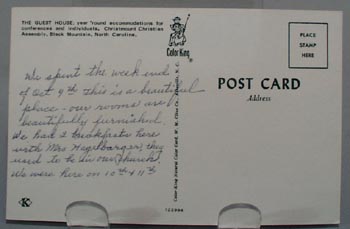 THE GUEST HOUSE: year 'round accommodations for
conferences and individuals, Christmount Christian
Assembly, Black Mountain, North Carolina.
We spent the week end
of Oct 9th this is a beautiful
place - our rooms are
beautifully furnished.
We had 2 breakfasts here
with Mrs Hagelbarger, they
used to be in our church.
We were here on 10th & 11th
K
Color King
Color-King Natural Color Card, W. M. Cline Co., Asheville, N. C.
122996
POST CARD
Address
PLACE
STAMP
HERE